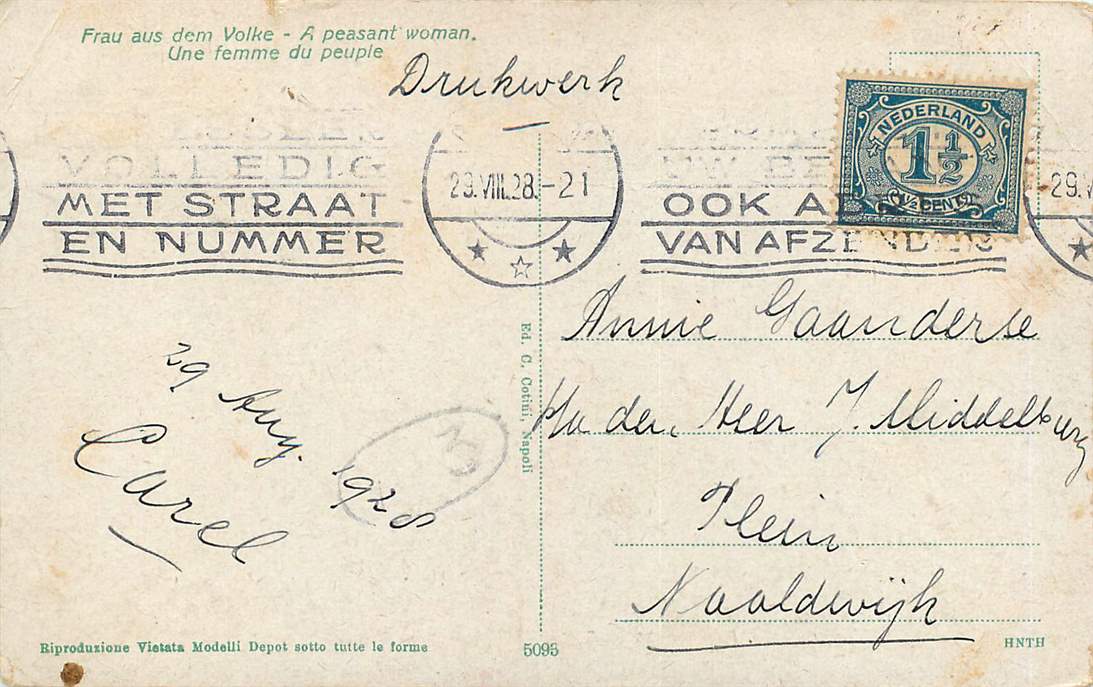 Frau aus dem Volke - A peasant woman.
Une femme du peuple
Drukwerk
VOLLEDIG
MET STRAAT
EN NUMMER
29.VIII.28.-21
UW
OOK
VAN AFZENDER
29.V
NEDERLAND
1 1/2
1/2 CENT
29 Aug. 1928
Carel
3
Ed. C. Cotini, Napoli
Annie Gaanderse
p/a den Heer J. Middelburg
Plein
Naaldwijk
Riproduzione Vietata Modelli Depot sotto tutte le forme
5095
HNTH